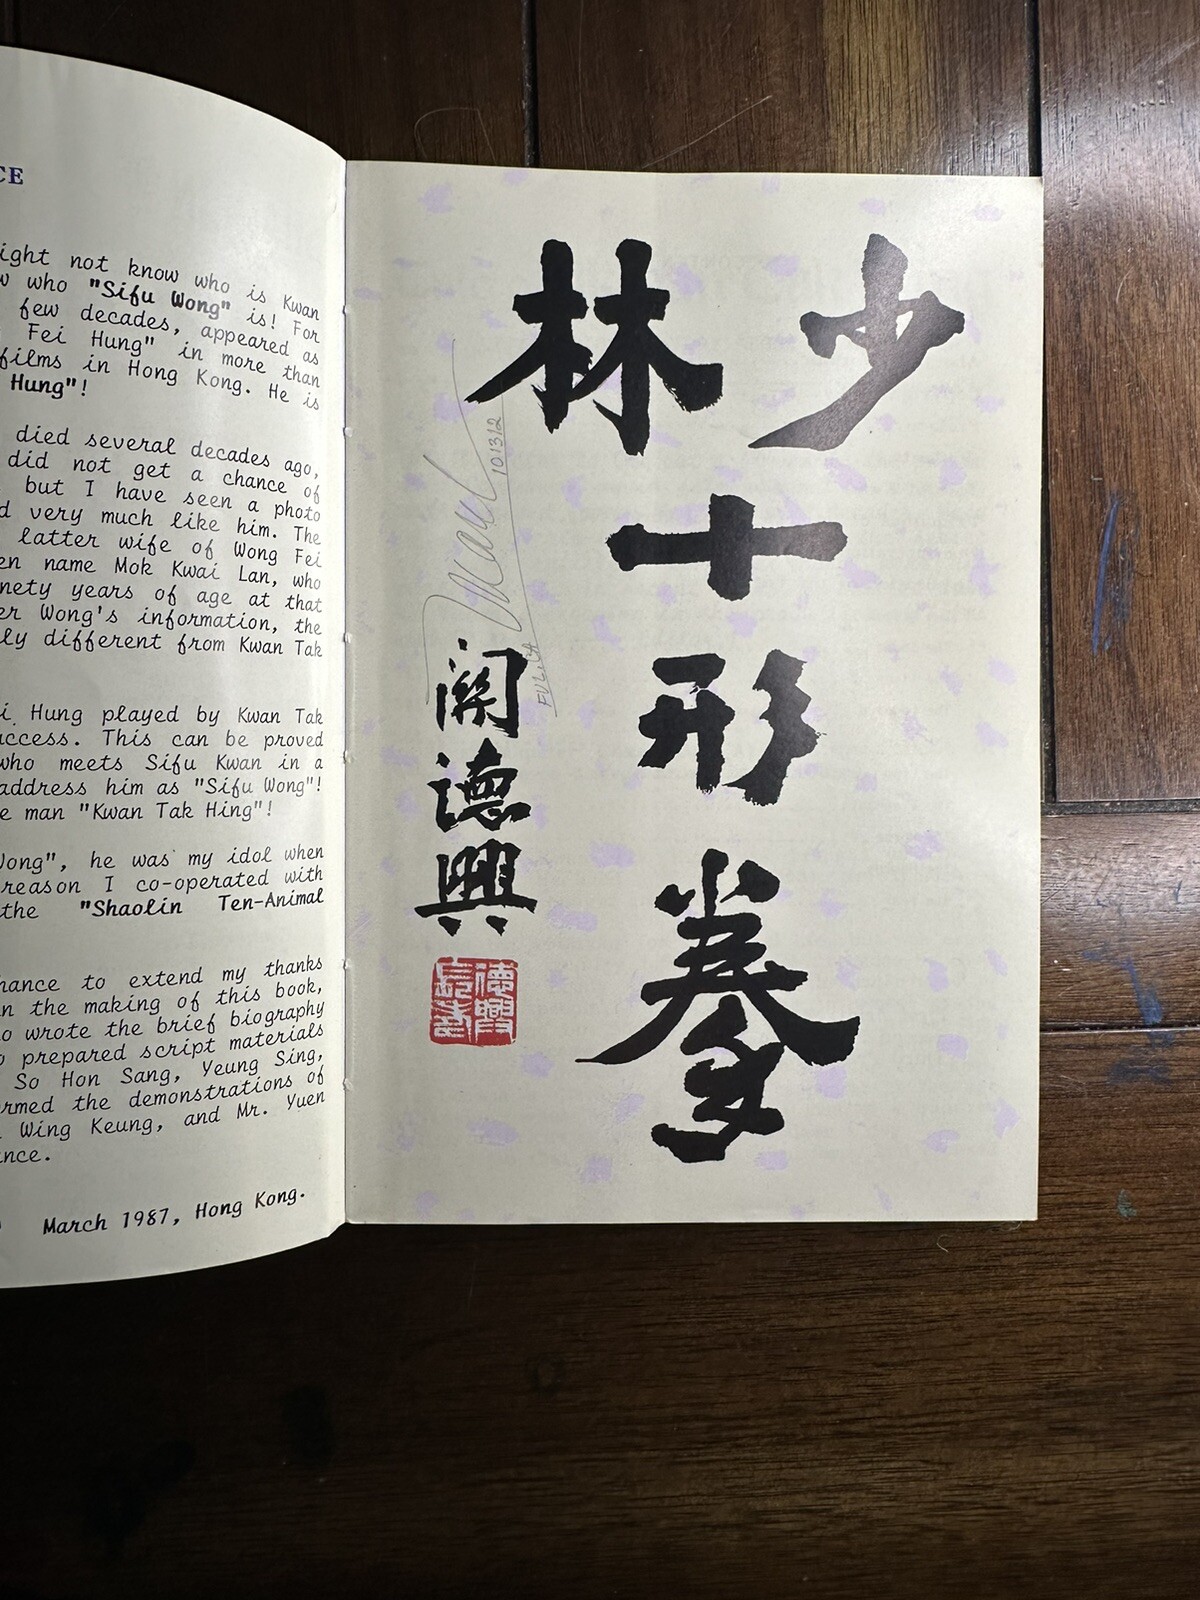 CE
ight not know who is Kwan
w who "Sifu Wong" is! For
few decades, appeared as
Fei Hung" in more than
films in Hong Kong. He is
Hung"!
died several decades ago,
did not get a chance of
but I have seen a photo
d very much like him. The
latter wife of Wong Fei
en name Mok Kwai Lan, who
nety years of age at that
er Wong's information, the
ly different from Kwan Tak
i Hung played by Kwan Tak
uccess. This can be proved
who meets Sifu Kwan in a
address him as "Sifu Wong"!
e man "Kwan Tak Hing"!
Wong", he was my idol when
reason I co-operated with
the "Shaolin Ten-Animal
hance to extend my thanks
n the making of this book,
o wrote the brief biography
o prepared script materials
So Hon Sang, Yeung Sing,
ormed the demonstrations of
Wing Keung, and Mr. Yuen
ance.
March 1987, Hong Kong.
少林
十
形
拳
101312
關德興
德興